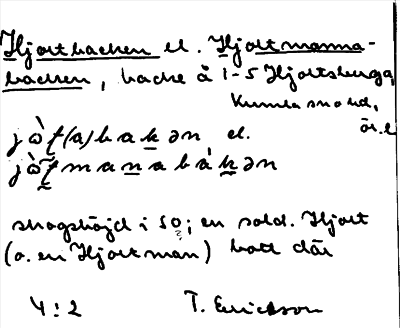 Hjortbacken el. Hjortmanna-
backen, backe å 1-5 Hjortsberga,
Kumla snd,
ör. l
jò̀ʈ(a)bakən el.
jò̀ʈmanabákən
skogshöjd i SO; en sold. Hjort
(o. en Hjortman) bott där
4:2 T. Ericsson